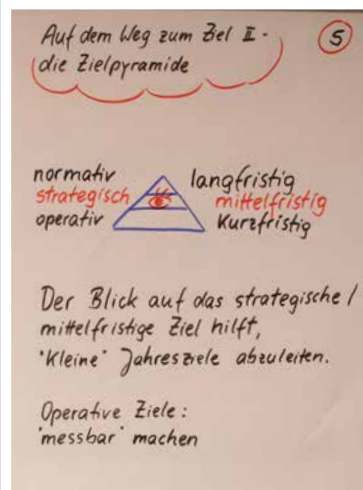 Auf dem Weg zum Ziel II -
die Zielpyramide
5
normativ langfristig
strategisch mittelfristig
operativ Kurzfristig
Der Blick auf das strategische /
mittelfristige Ziel hilft,
"Kleine" Jahresziele abzuleiten.
Operative Ziele:
'messbar' machen